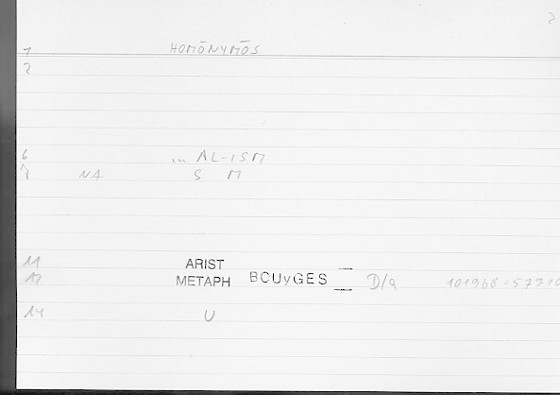 2
1 HOMŌNYMŌS
2
6 ... AL-ISM
NA S M
11 ARIST
12 METAPH BCUyGES D/a 101968-5771
14 U